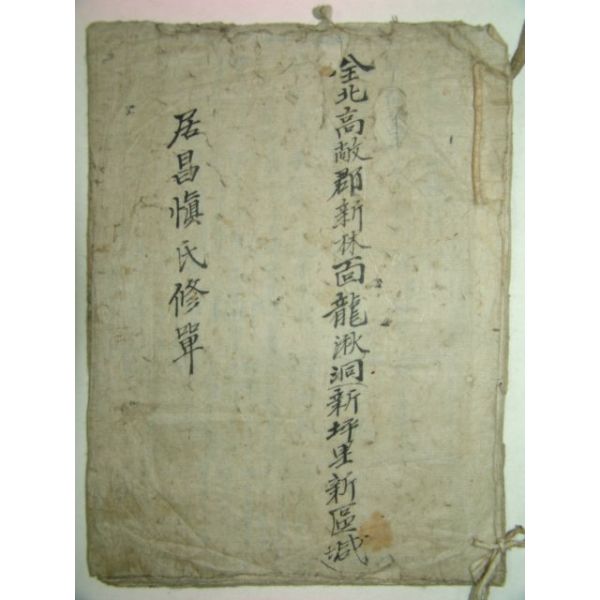 全北高敞郡新林面龍湫洞(新坪里新區域)
居昌愼氏修單